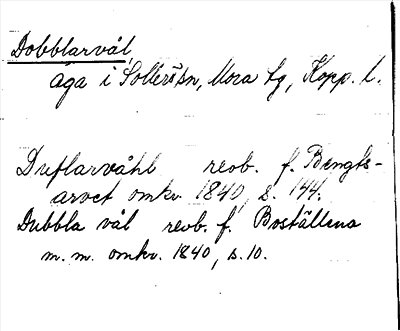 Dobblarvål
äga i Sollerö sn, Mora tg, Kopp. l.
Duflarvåhl reob. f. Bengts-
arvet omkr. 1840, s. 144.
Dubbla vål reob. f. Boställena
m. m. omkr. 1840, s. 10.